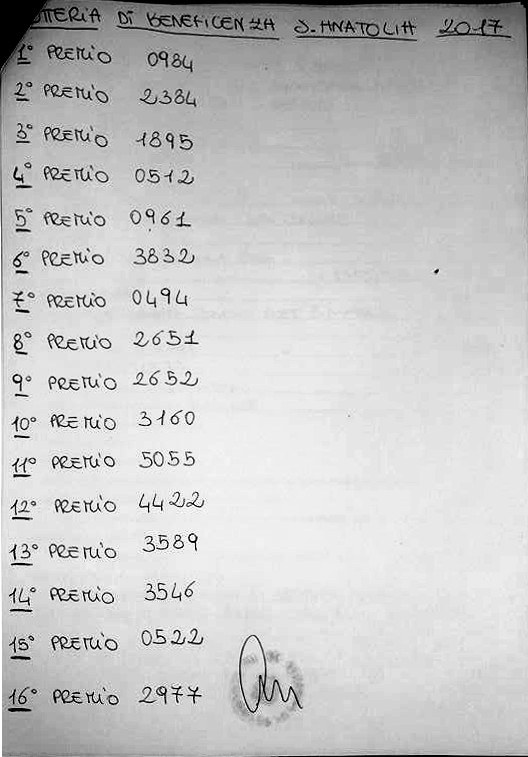 OTTERIA DI BENEFICENZA S. ANATOLIA 2017
1° PREMIO 0984
2° PREMIO 2384
3° PREMIO 1895
4° PREMIO 0512
5° PREMIO 0961
6° PREMIO 3832
7° PREMIO 0494
8° PREMIO 2651
9° PREMIO 2652
10° PREMIO 3160
11° PREMIO 5055
12° PREMIO 4422
13° PREMIO 3589
14° PREMIO 3546
15° PREMIO 0522
16° PREMIO 2977